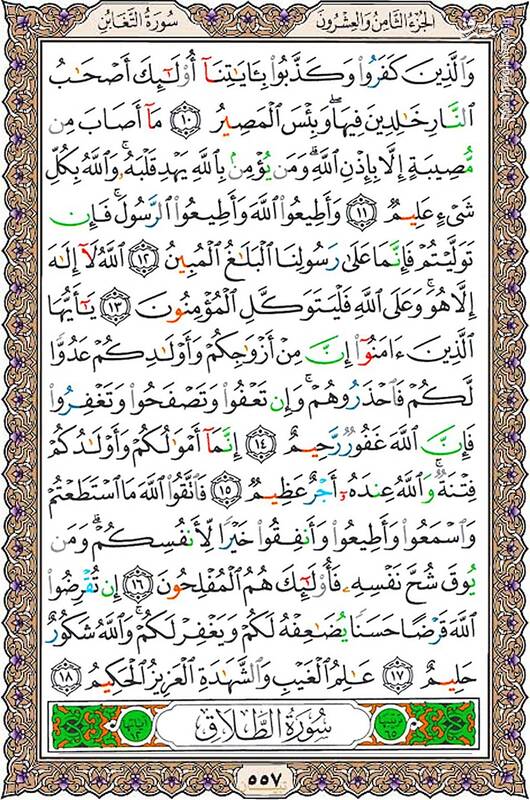 سُورَةُ التَّغَابُنِ الجُزْءُ الثَّامِنُ وَالعِشْرُونَ
وَٱلَّذِينَ كَفَرُوا۟ وَكَذَّبُوا۟ بِـَٔايَٰتِنَآ أُو۟لَٰٓئِكَ أَصْحَٰبُ
ٱلنَّارِ خَٰلِدِينَ فِيهَا ۖ وَبِئْسَ ٱلْمَصِيرُ ١٠ مَآ أَصَابَ مِن
مُّصِيبَةٍ إِلَّا بِإِذْنِ ٱللَّهِ ۗ وَمَن يُؤْمِنۢ بِٱللَّهِ يَهْدِ قَلْبَهُۥ ۚ وَٱللَّهُ بِكُلِّ
شَىْءٍ عَلِيمٌ ١١ وَأَطِيعُوا۟ ٱللَّهَ وَأَطِيعُوا۟ ٱلرَّسُولَ ۚ فَإِن
تَوَلَّيْتُمْ فَإِنَّمَا عَلَىٰ رَسُولِنَا ٱلْبَلَٰغُ ٱلْمُبِينُ ١٢ ٱللَّهُ لَآ إِلَٰهَ
إِلَّا هُوَ ۚ وَعَلَى ٱللَّهِ فَلْيَتَوَكَّلِ ٱلْمُؤْمِنُونَ ١٣ يَٰٓأَيُّهَا
ٱلَّذِينَ ءَامَنُوٓا۟ إِنَّ مِنْ أَزْوَٰجِكُمْ وَأَوْلَٰدِكُمْ عَدُوًّا
لَّكُمْ فَٱحْذَرُوهُمْ ۚ وَإِن تَعْفُوا۟ وَتَصْفَحُوا۟ وَتَغْفِرُوا۟
فَإِنَّ ٱللَّهَ غَفُورٌ رَّحِيمٌ ١٤ إِنَّمَآ أَمْوَٰلُكُمْ وَأَوْلَٰدُكُمْ
فِتْنَةٌ ۚ وَٱللَّهُ عِندَهُۥٓ أَجْرٌ عَظِيمٌ ١٥ فَٱتَّقُوا۟ ٱللَّهَ مَا ٱسْتَطَعْتُمْ
وَٱسْمَعُوا۟ وَأَطِيعُوا۟ وَأَنفِقُوا۟ خَيْرًا لِّأَنفُسِكُمْ ۗ وَمَن
يُوقَ شُحَّ نَفْسِهِۦ فَأُو۟لَٰٓئِكَ هُمُ ٱلْمُفْلِحُونَ ١٦ إِن تُقْرِضُوا۟
ٱللَّهَ قَرْضًا حَسَنًا يُضَٰعِفْهُ لَكُمْ وَيَغْفِرْ لَكُمْ ۚ وَٱللَّهُ شَكُورٌ
حَلِيمٌ ١٧ عَٰلِمُ ٱلْغَيْبِ وَٱلشَّهَٰدَةِ ٱلْعَزِيزُ ٱلْحَكِيمُ ١٨
سُورَةُ الطَّلَاقِ
٥٥٧